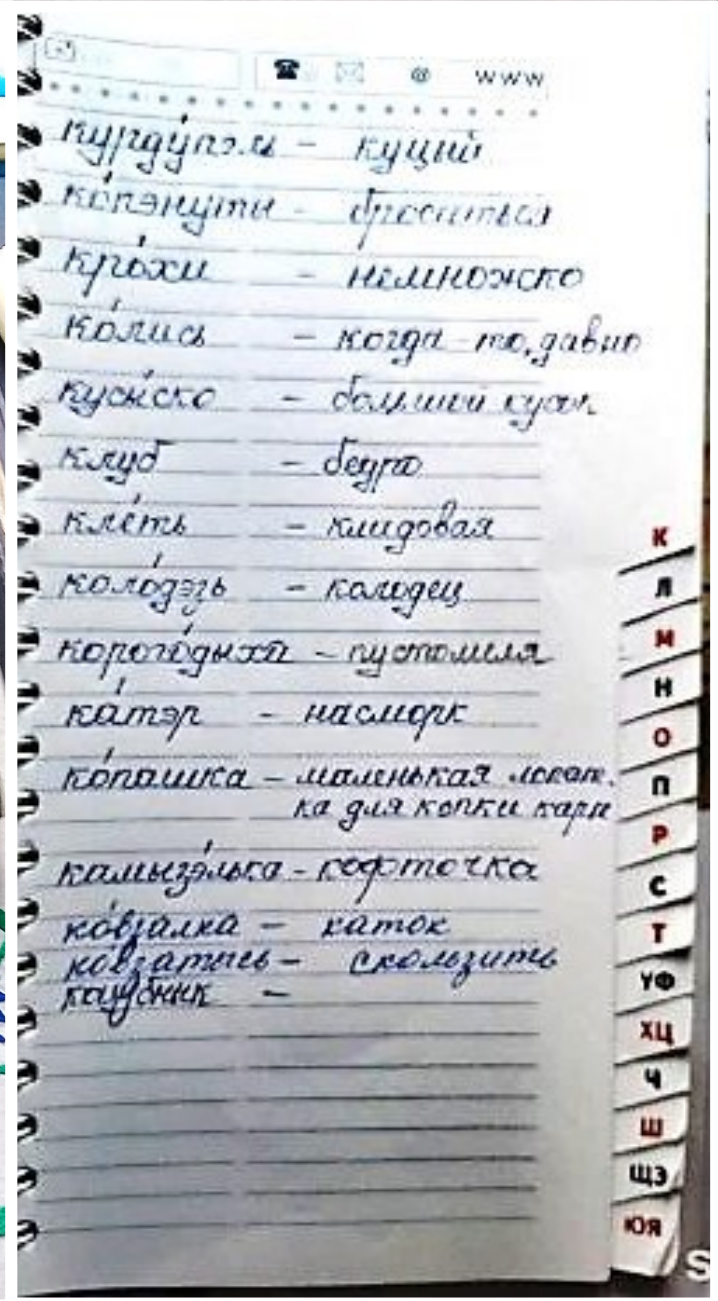 www
курду́пэль - куций
ко́пэнуты - броситься
кро́хи - немножко
ко́лись - когда-то, давно
куси́ско - большой кусок
клуб - бедро
кле́ть - кладовая
коло́дэзь - колодец
корого́дыха - пустомеля
ка́тэр - насморк
ко́пашка - маленькая лопат-
ка для копки карт
камызэ́лька - кофточка
ко́взалка - каток
ковзатысь - скользить
-
К
Л
М
Н
О
П
Р
С
Т
УФ
ХЦ
Ч
Ш
ЩЭ
ЮЯ
S